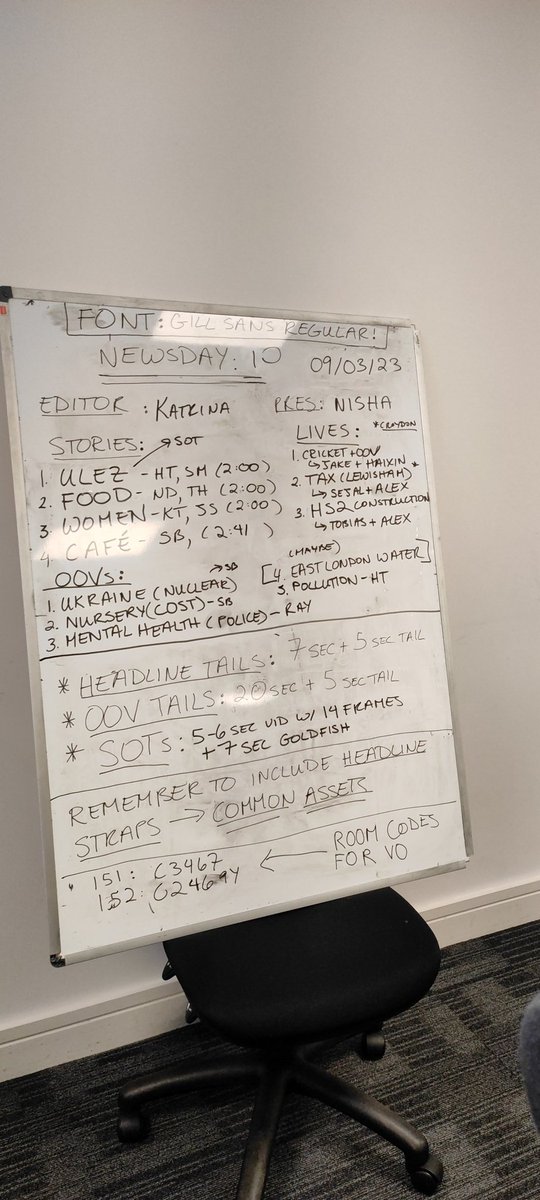 FONT: GILL SANS REGULAR!
NEWSDAY: 10
09/03/23
EDITOR : KATRINA
PRES: NISHA
STORIES: SOT
1. ULEZ - HT, SM (2:00)
2. FOOD - ND, TH (2:00)
3. WOMEN - KT, JS (2:00)
4. CAFÉ - SB, (2:41 )
LIVES: *CROYDON
1. CRICKET + OOV
↳ JAKE + HAIXIN
2. TAX (LEWISHAM)*
↳ SEJAL + ALEX
3. HS2 CONSTRUCTION
↳ TOBIAS + ALEX
(MAYBE)
[4. EAST LONDON WATER]
5. POLLUTION - HT
OOVs:
1. UKRAINE (NUCLEAR) → SB
2. NURSERY (COST) - SB
3. MENTAL HEALTH (POLICE) - RAY
* HEADLINE TAILS: 7 SEC + 5 SEC TAIL
* OOV TAILS: 20 SEC + 5 SEC TAIL
* SOTs: 5-6 SEC VID W/ 14 FRAMES
+ 7 SEC GOLDFISH
REMEMBER TO INCLUDE HEADLINE
STRAPS → COMMON ASSETS
151: C3467
152:
← ROOM CODES
FOR VO